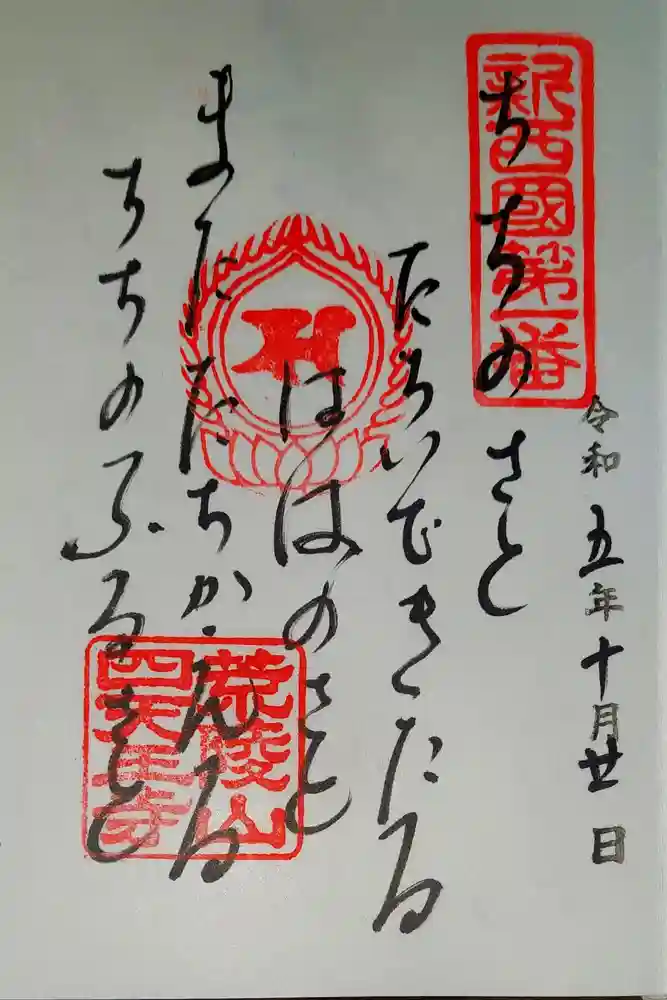 令和五年十月廿日
新西國第一番
ちちのさと
たちいできたる
ははのさと
またたちかへる
ちちのふるさと
荒陵山
四天王寺